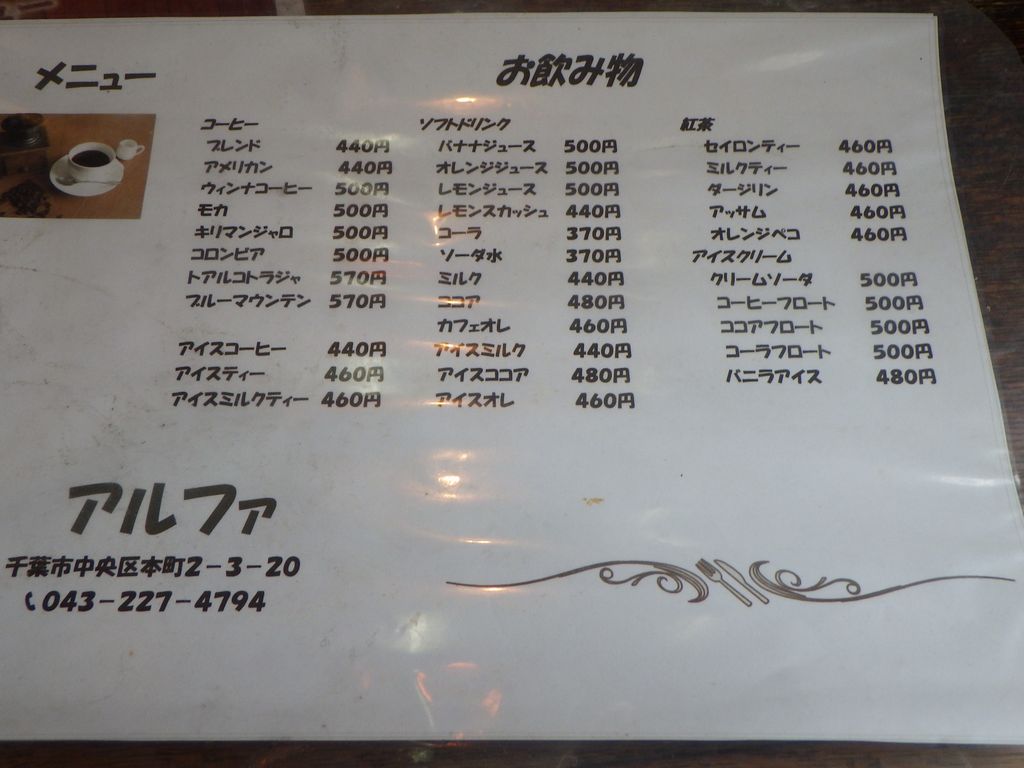 メニュー
お飲み物
コーヒー
ブレンド 440円
アメリカン 440円
ウィンナコーヒー 500円
モカ 500円
キリマンジャロ 500円
コロンビア 500円
トアルコトラジャ 570円
ブルーマウンテン 570円
アイスコーヒー 440円
アイスティー 460円
アイスミルクティー 460円
ソフトドリンク
バナナジュース 500円
オレンジジュース 500円
レモンジュース 500円
レモンスカッシュ 440円
コーラ 370円
ソーダ水 370円
ミルク 440円
ココア 480円
カフェオレ 460円
アイスミルク 440円
アイスココア 480円
アイスオレ 460円
紅茶
セイロンティー 460円
ミルクティー 460円
ダージリン 460円
アッサム 460円
オレンジペコ 460円
アイスクリーム
クリームソーダ 500円
コーヒーフロート 500円
ココアフロート 500円
コーラフロート 500円
バニラアイス 480円
アルファ
千葉市中央区本町2-3-20
043-227-4794